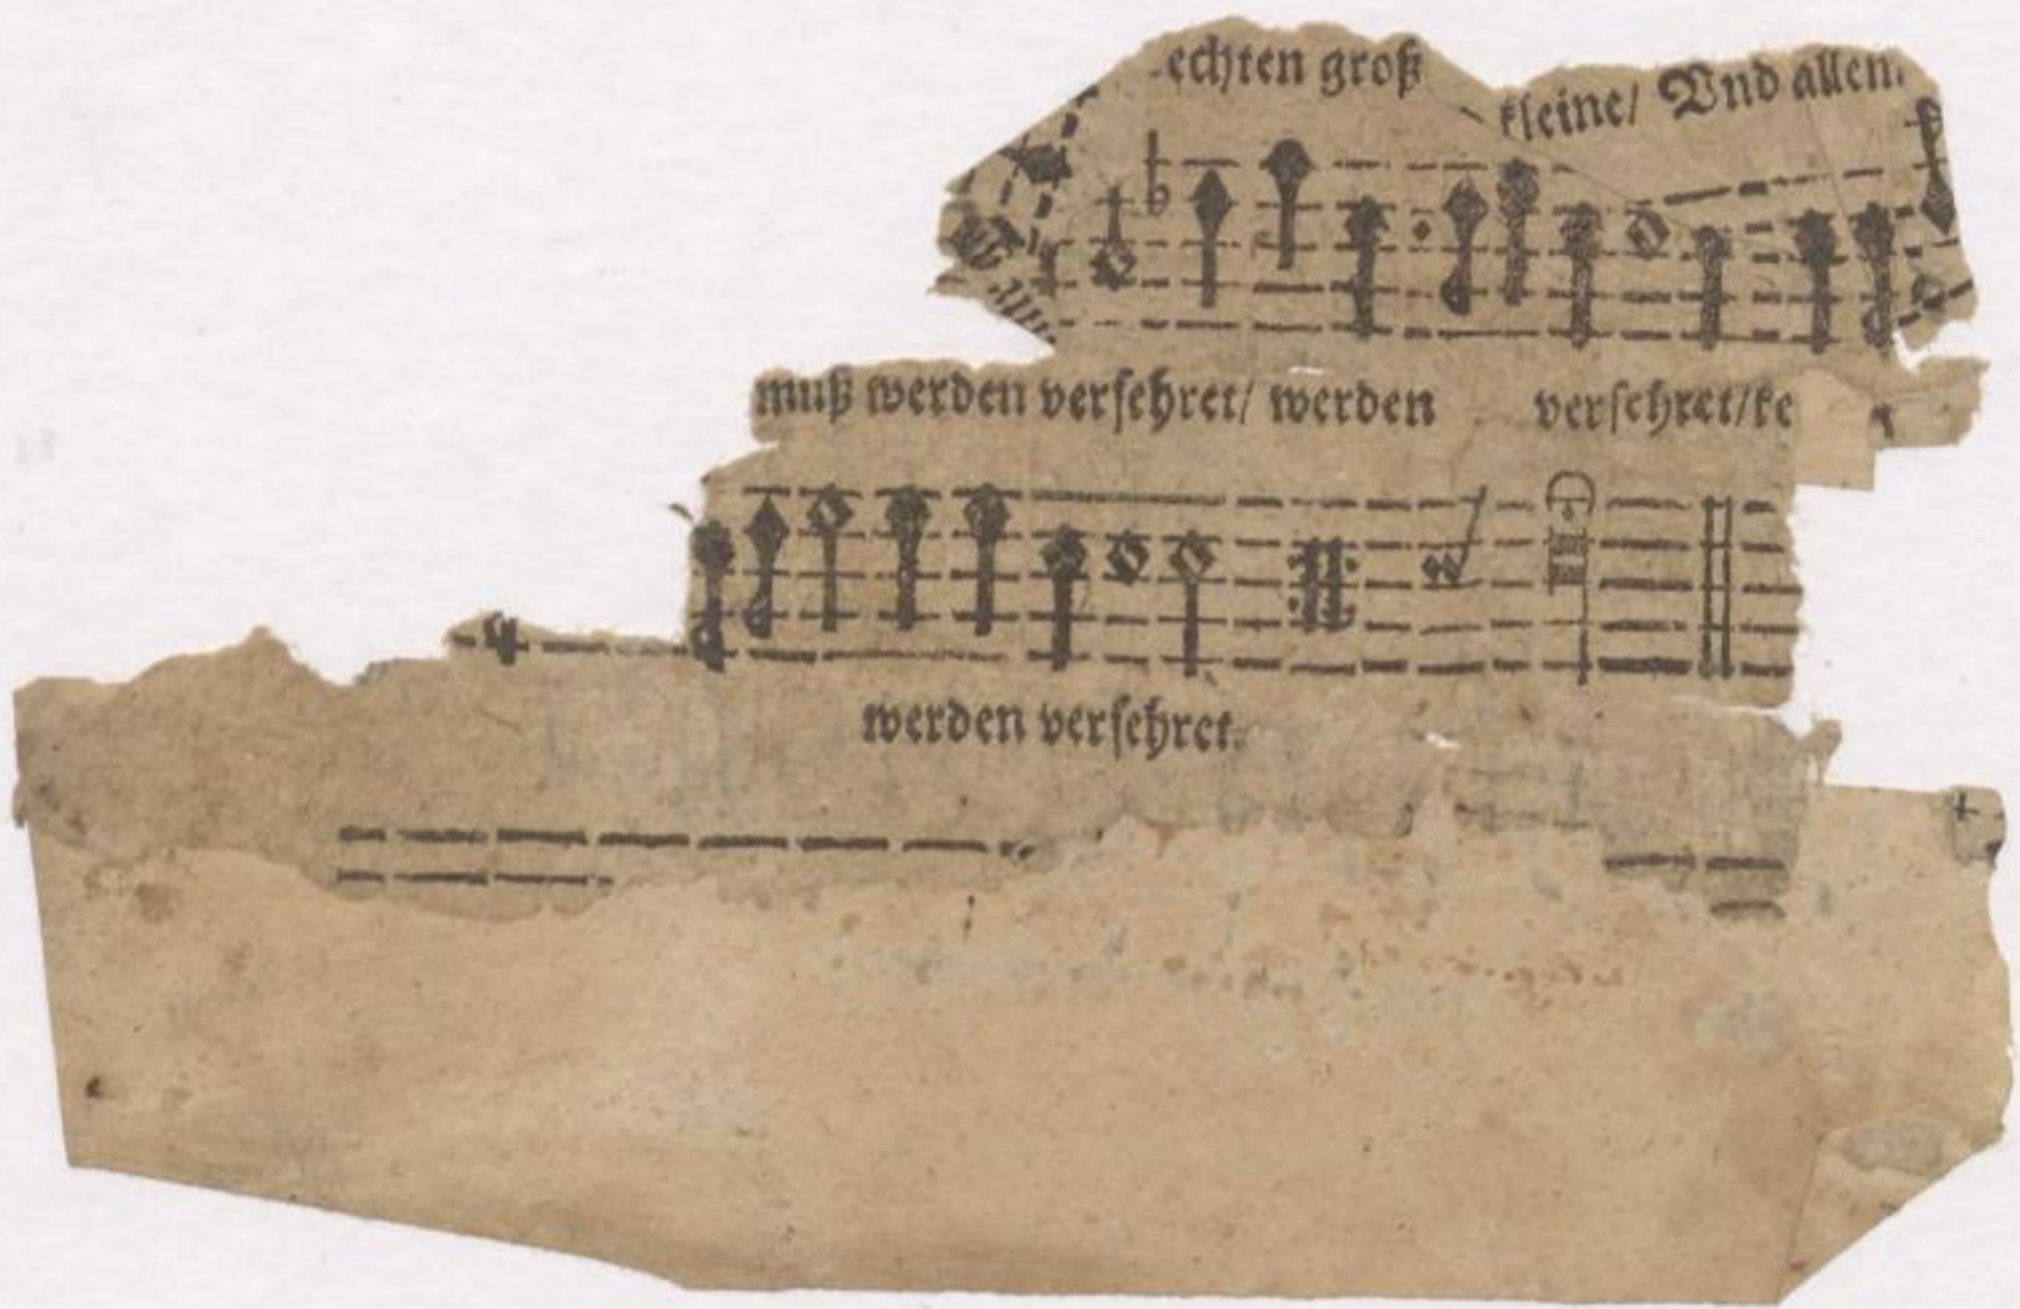 echten groß kleine/ Vnd allen
muß werden versehret/ werden versehret/ke
werden versehret.